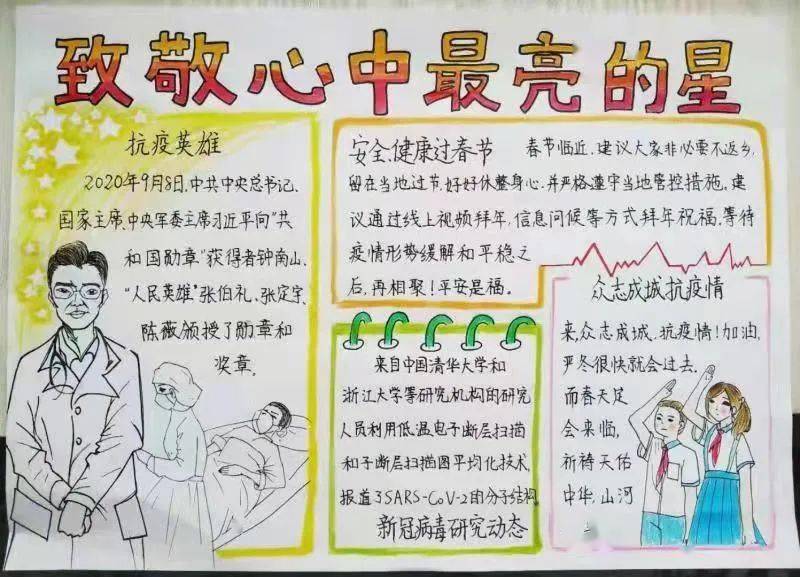 致敬心中最亮的星
抗疫英雄
2020年9月8日,中共中央总书记、
国家主席、中央军委主席习近平向“共
和国勋章”获得者钟南山、
“人民英雄”张伯礼、张定宇、
陈薇颁授了勋章和
奖章。
安全、健康过春节 春节临近,建议大家非必要不返乡,
留在当地过节,好好休整身心,并严格遵守当地管控措施。建
议通过线上视频拜年,信息问候等方式拜年祝福,等待
疫情形势缓解和平稳之
后,再相聚!平安是福。
来自中国清华大学和
浙江大学等研究机构的研究
人员利用低温电子断层扫描
和子断层扫描图平均化技术,
报道了SARS-CoV-2的分子结构
新冠病毒研究动态
众志成城抗疫情
来,众志成城,抗疫情!加油,
严冬很快就会过去,
而春天定
会来临,
祈祷天佑
中华,山河